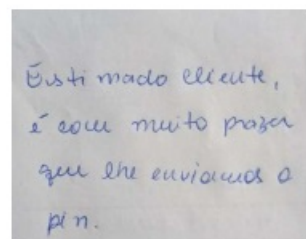 Estimado cliente,
é com muito prazer
que lhe enviamos o
pin.